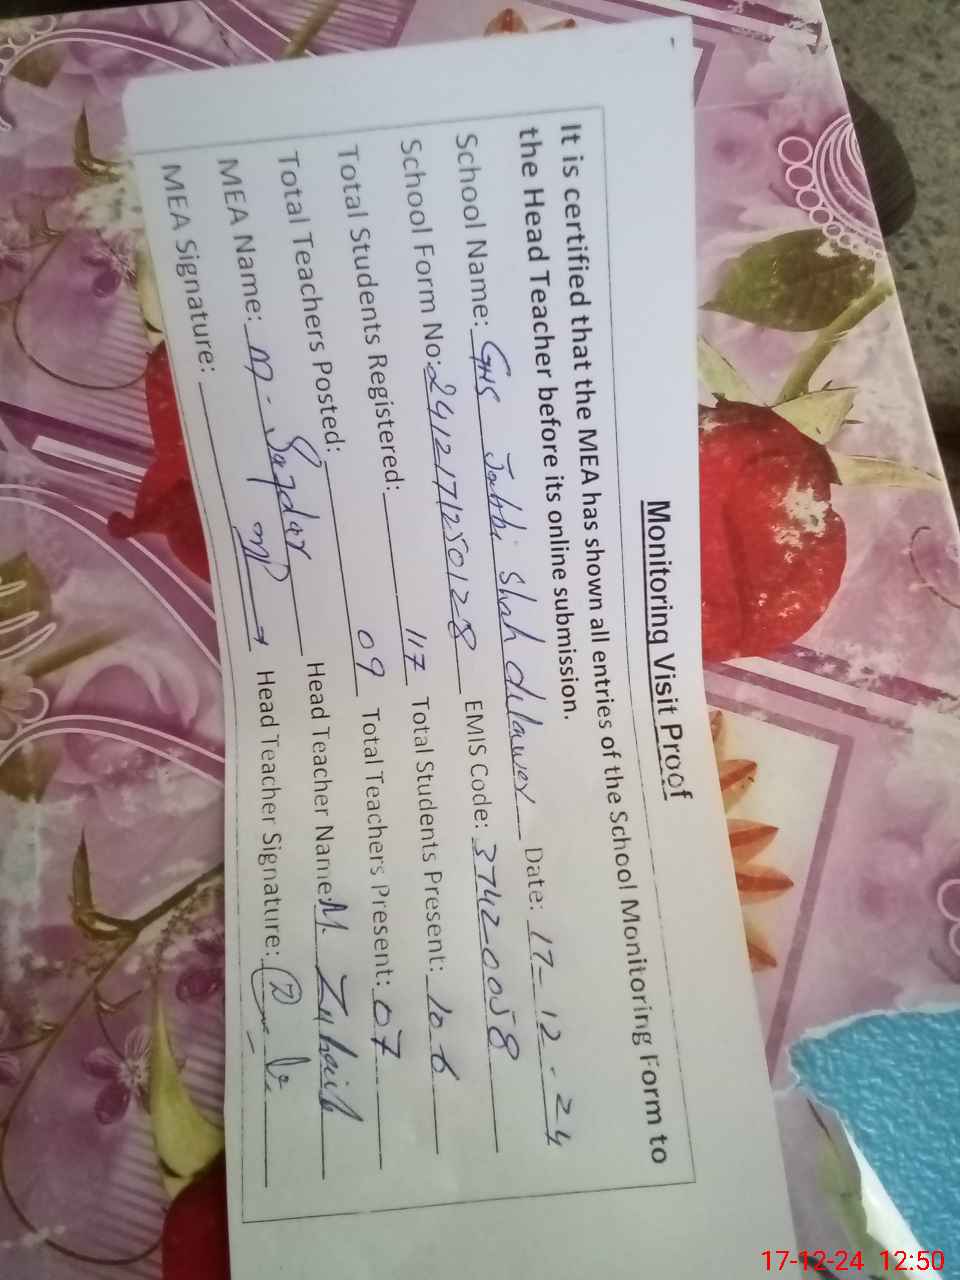 Monitoring Visit Proof
It is certified that the MEA has shown all entries of the School Monitoring Form to
the Head Teacher before its online submission.
School Name: GHS Jabbi Shah dilawer Date: 17-12-24
School Form No: 2412171250128 EMIS Code: 37420058
Total Students Registered: 117 Total Students Present: 106
Total Teachers Posted: 09 Total Teachers Present: 07
MEA Name: M. Safdar Head Teacher Name: M. Zuhaib
MEA Signature: Head Teacher Signature:
17-12-24 12:50